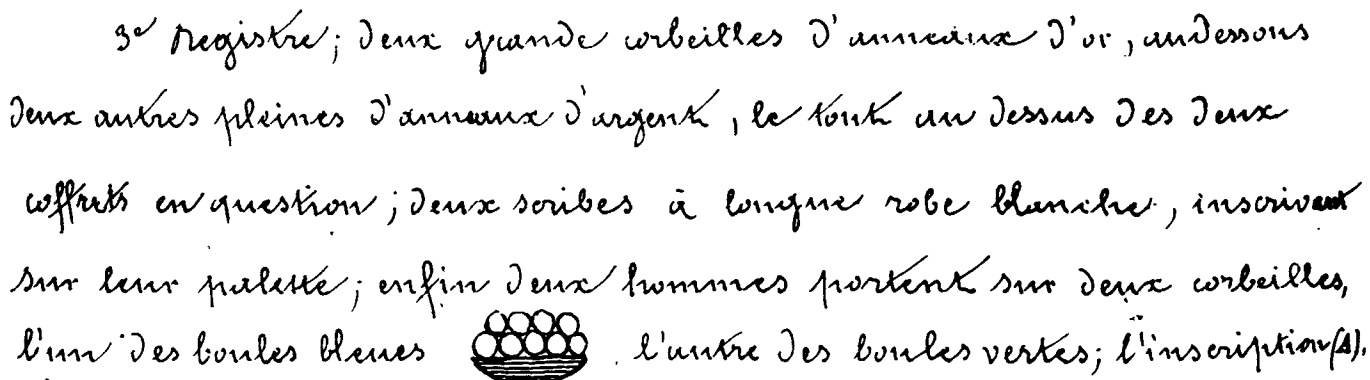 3e Registre ; deux grande corbeilles d'anneaux d'or, audessous
deux autres pleines d'anneaux d'argent, le tout au dessus des deux
coffrets en question ; deux scribes à longue robe blanche, inscrivant
sur leur palette ; enfin deux hommes portent sur deux corbeilles,
l'un des boules bleues l'autre des boules vertes ; l'inscription (A).